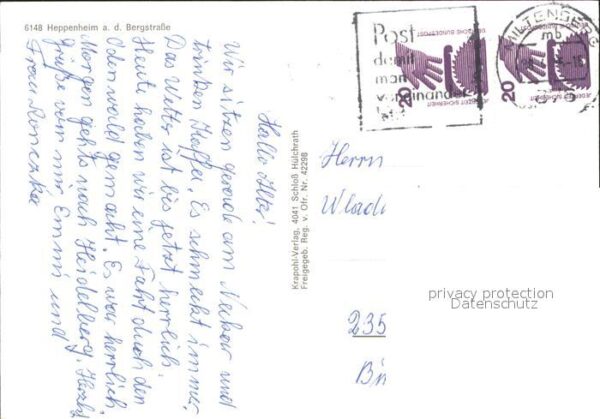 6148 Heppenheim a. d. Bergstraße
Hallo
Wir sitzen gerade am Neckar und
trinken Kaffee. Es schmeckt immer.
Das Wetter ist bis jetzt herrlich.
Heute haben wir eine Fahrt durch den
Odenwald gemacht. Es war herrlich.
Morgen gehts nach Heidelberg. Herzl.
grüße von mir, Emmi und
Frau
Krapohl-Verlag, 4041 Schloß Hülchrath
Freigegeb. Reg. v. Ofr. Nr. 42298
Post
damit
man
voneinander
MILTENBERG
mb
DEUTSCHE BUNDESPOST
JEDERZEIT SICHERHEIT
20
20
Herrn
Wladi
235
privacy protection
Datenschutz